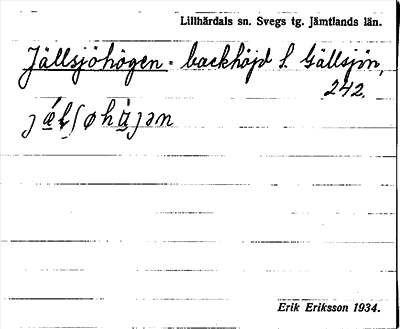 Lillhärdals sn. Svegs tg. Jämtlands län.
Jällsjöhögen - backhöjd S. Gällsjön,
242.
Erik Eriksson 1934.